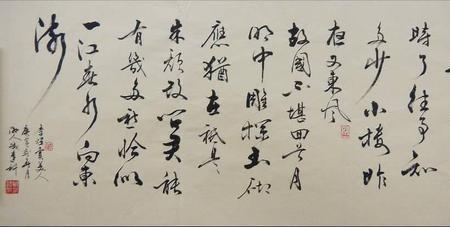 時了往事知
多少小樓昨
夜又東風
故國不堪回首月
明中雕欄玉砌
應猶在祗是
朱顏改问君能
有幾多愁恰似
一江春水向東
流
李煜虞美人